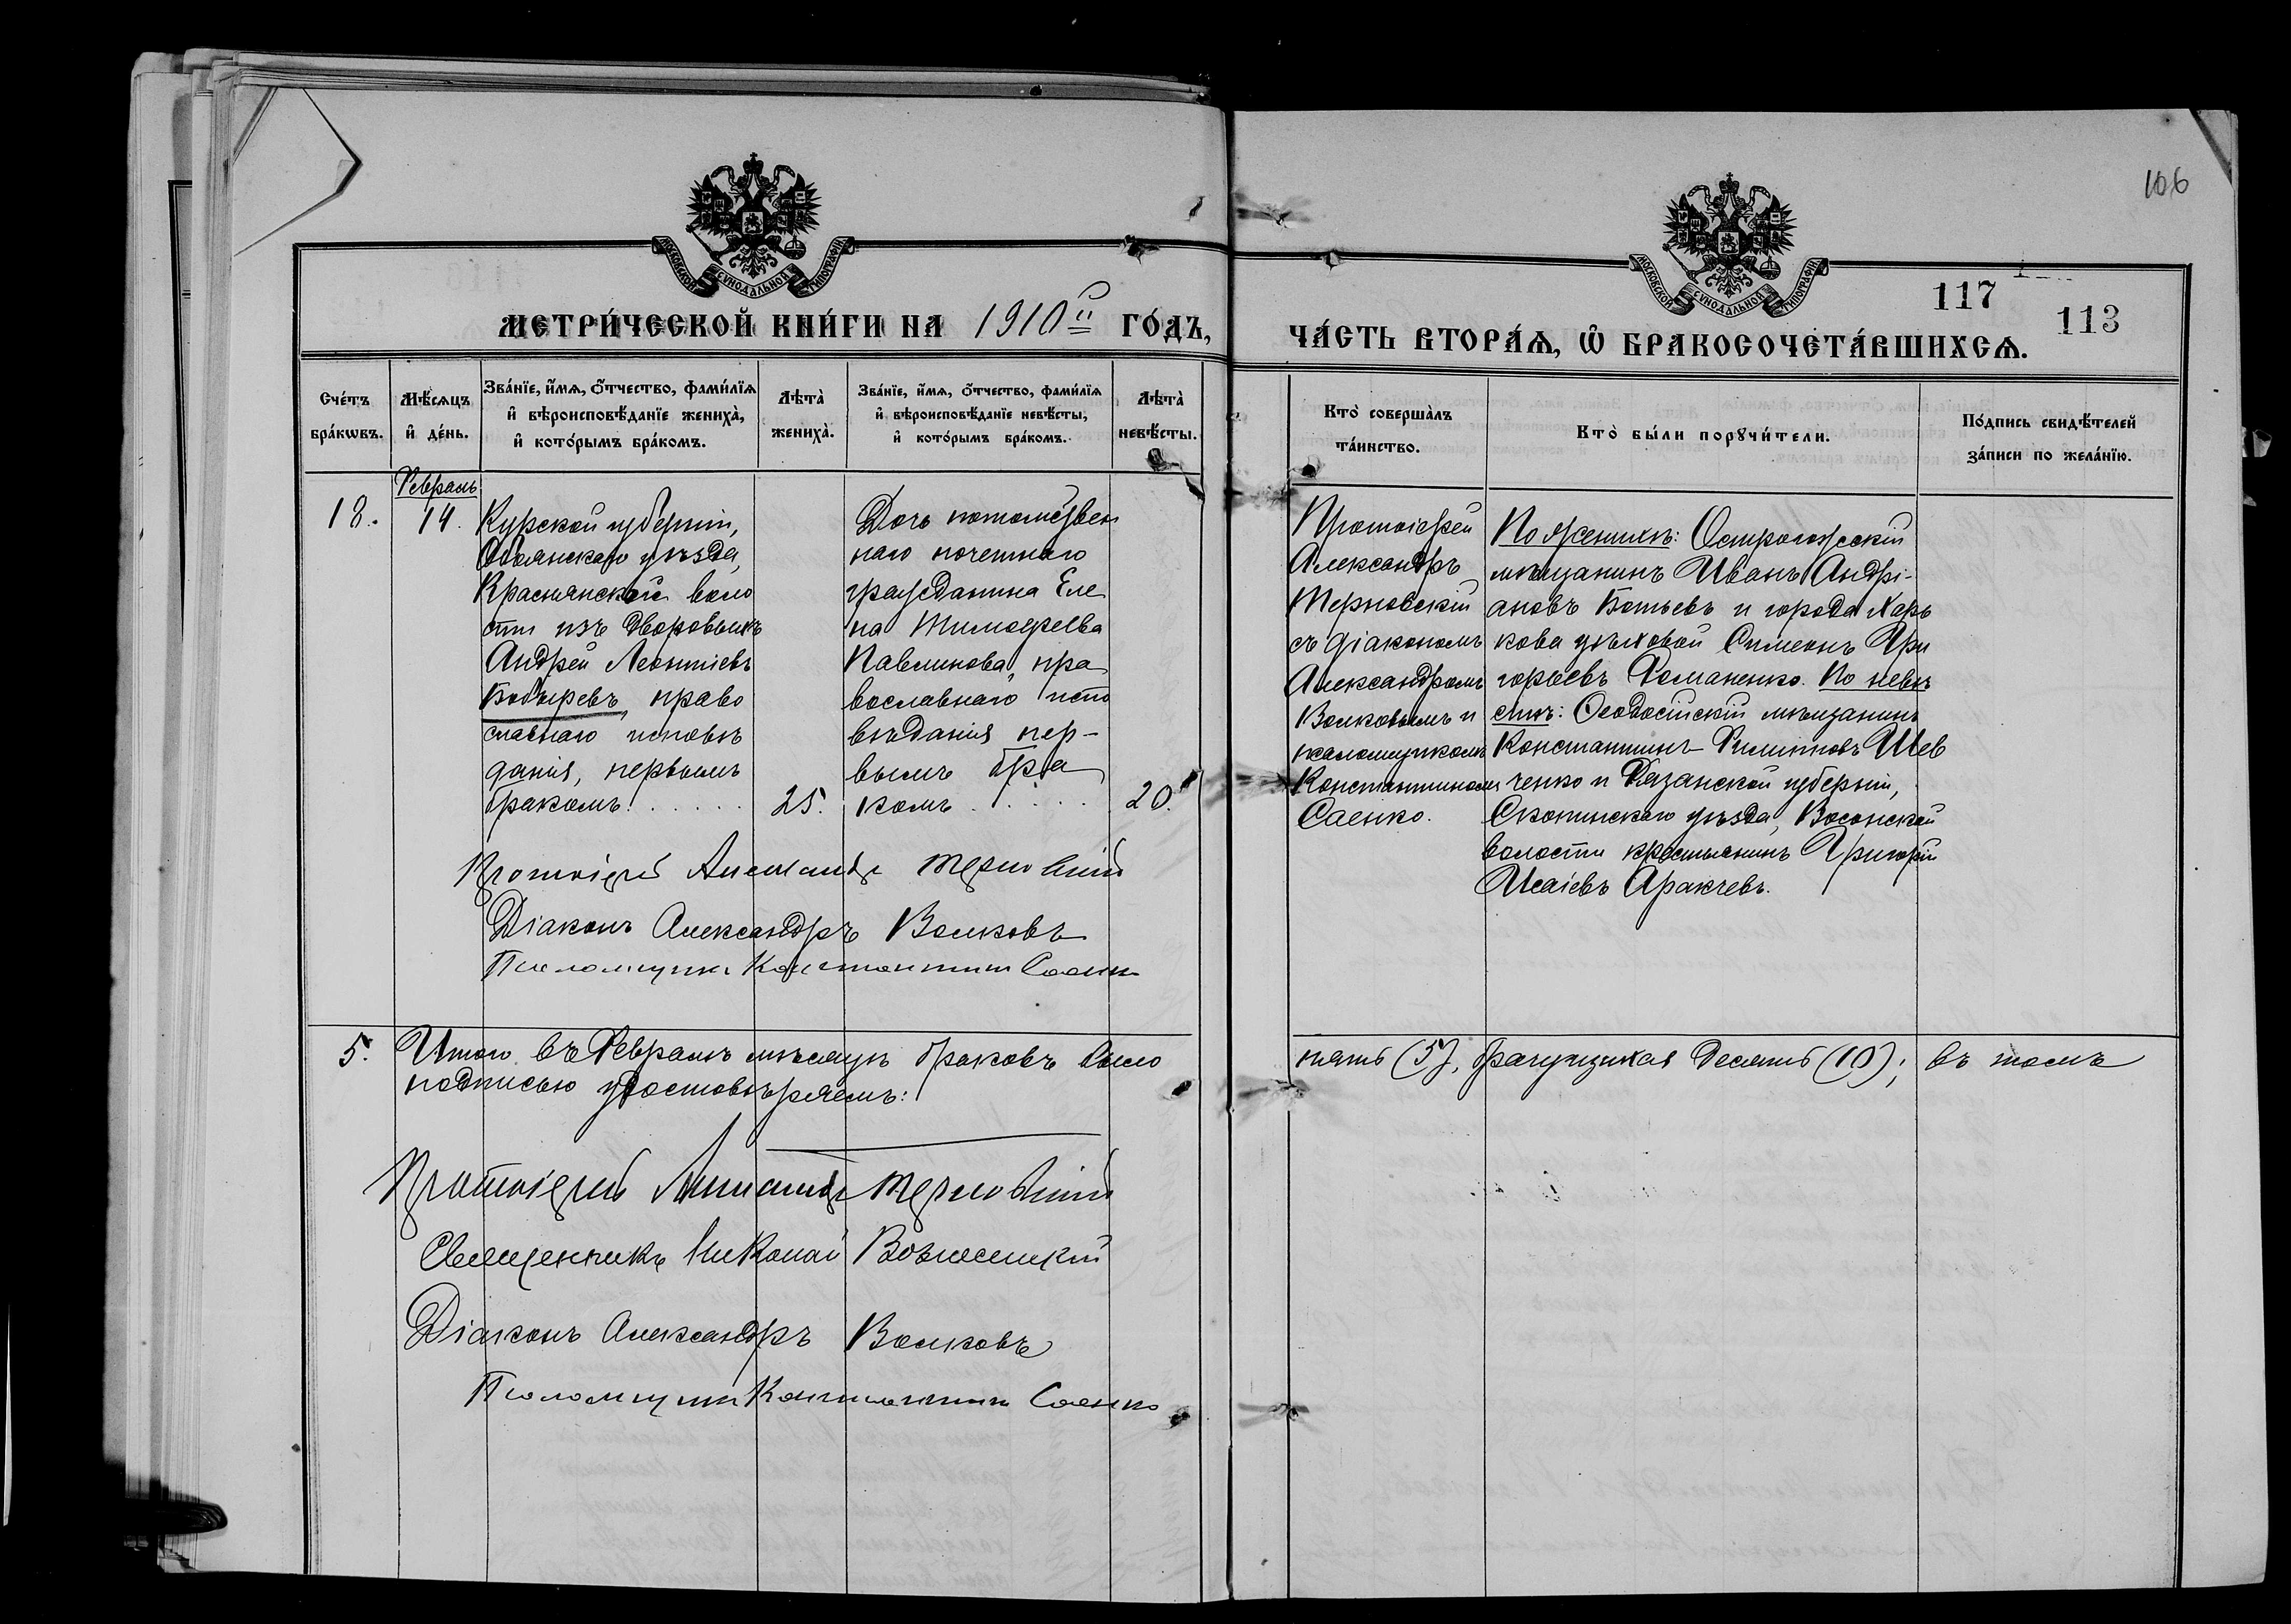 106
МОСКОВСКОЙ СѴНОДАЛЬНОЙ ТИПОГРАФІИ
МОСКОВСКОЙ СѴНОДАЛЬНОЙ ТИПОГРАФІИ
117
113
МЕТРИ́ЧЕСКОЙ КНИ́ГИ НА 1910й ГО́ДЪ,
ЧА́СТЬ ВТОРА́Ѧ, Ѡ҆ БРАКОСОЧЕТА́ВШИХСѦ.
Сче́тъ
бра́кѡвъ.
Мѣ́сяцъ
и҆ де́нь.
Зва́нїе, и҆́мѧ, о҆́тчество, фами́лїѧ
и҆ вѣроисповѣ́данїе жениха̀,
и҆ кото́рымъ бра́комъ.
Лѣта̀
жениха̀.
Зва́нїе, и҆́мѧ, о҆́тчество, фами́лїѧ
и҆ вѣроисповѣ́данїе невѣ́сты,
и҆ кото́рымъ бра́комъ.
Лѣта̀
невѣ́сты.
Кто̀ соверша̀лъ
та́инство.
Кто̀ бы́ли порꙋчи́тели.
По́дпись свидѣ́телей
за́писи по жела́нїю.
18.
Февраль
14.
Курской губерніи,
Обоянскаго уѣзда,
Краснянской воло
сти изъ дворовыхъ
Андрей Леонтіевъ
Бобыревъ, право
славнаго исповѣ
данія, первымъ
бракомъ. . . . . .
25.
Дочь потомствен
наго почетнаго
гражданина Еле
на Тимофеева
Павлинова, пра
вославнаго испо
вѣданія пер-
вымъ бра
комъ . . . . .
20.
Протоіерей
Александръ
Терновскій
съ діакономъ
Александромъ
Волковымъ и
псаломщикомъ
Константиномъ
Саенко.
По женихѣ: Острогожскій
мѣщанинъ Иванъ Андрі-
ановъ Ботьевъ и города Харь
кова цѣховой Симеонъ Гри
горьевъ Романенко. По невѣ
стѣ: Ѳеодосійскій мѣщанинъ
Константинъ Филипповъ Шев
ченко и Рязанской губерніи,
Скопинскаго уѣзда, Восонской
волости крестьянинъ Григорій
Исаіевъ Аракчевъ.
Протоіерей Александръ Терновскій
Діаконъ Александръ Волковъ
Псаломщикъ Константинъ Саенко
5. Итого въ Февралѣ мѣсяцѣ браковъ было пять (5), брачущихся десять (10); въ томъ
подписью удостовѣряемъ:
Протоіерей Александръ Терновскій
Священникъ Николай Вознесенскій
Діаконъ Александръ Волковъ
Псаломщикъ Константинъ Саенко